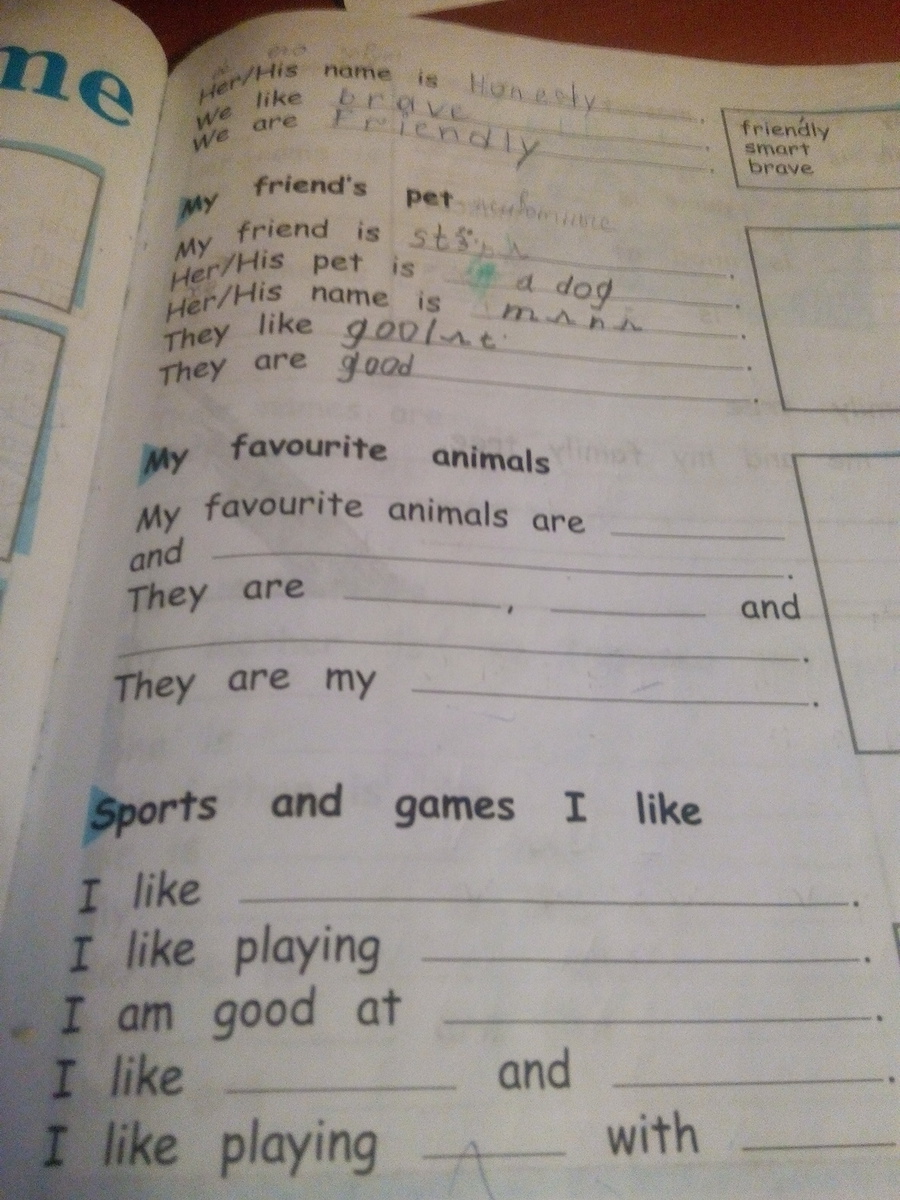 ne
Her/His name is Honesty.
We like brave.
We are Friendly.
friendly
smart
brave
My friend's pet
My friend is .
Her/His pet is a dog.
Her/His name is .
They like .
They are good.
My favourite animals
My favourite animals are
and .
They are , and
.
They are my .
Sports and games I like
I like .
I like playing .
I am good at .
I like and .
I like playing with